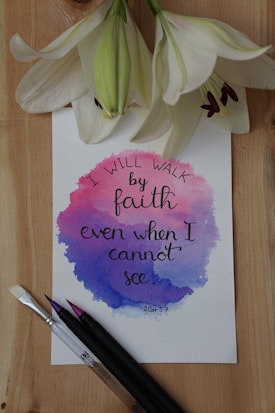 I WILL WALK
by
faith
even when I
cannot
see.
2 Cor 5:7